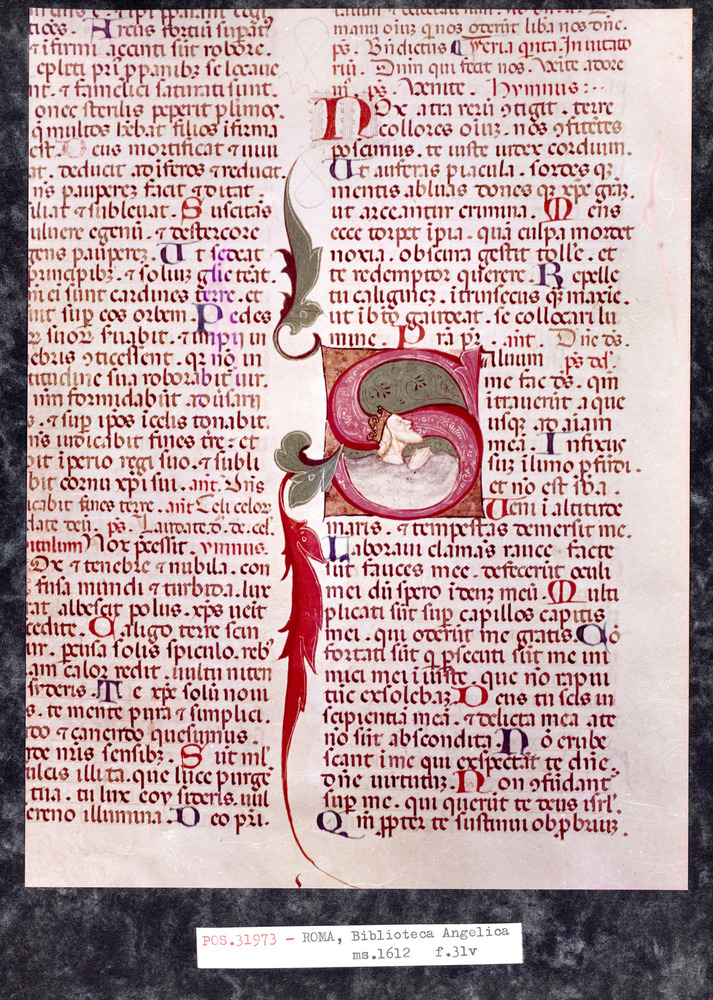 Arcus fortiũ supatꝰ
⁊ ĩfirmi accinti sũt robore.
⁊ famelici saturati sunt.
onec sterilis peperit plimoꝫ.
q̃ multos hẽbat filios ĩfirma
est. Deus mortificat ⁊ uiui
at. deducit ad ĩferos ⁊ reducit.
ns paupereꝫ facit ⁊ ditat.
iliat ⁊ subleuat. Suscitãs
uluere egenũ. ⁊ destercore
gens pauperez. Ut sedeat
principibꝫ. ⁊ soliuꝫ glie teat.
ni ei sunt cardines terre. et
uit sup eos orbem. Pedes
suoꝝ ẜuabit. ⁊ impij in
ebris ꝯticessent. qꝛ nõ in
titudine sua roborabit᷑ uir.
num formidabũt adũsarij
s. ⁊ sup ipos ĩcelis tonabit.
ns iudicabit fines tre. et
bit ĩperio regi suo. ⁊ subli
bit cornu xpi sui. añt. Dñs
icabit fines terre. añt. Celi celoꝝ
date deũ. ps. Laudate. d. de. cel.
itulum Nox p̃cessit. ymnus.
Ox ⁊ tenebre ⁊ nubila. con
fusa mundi ⁊ turbida. lux
rat albescit polus. xp̃s ueit
cedite. Caligo terre scin
ur. p̃cusa solis spiculo. rebꝰ
iam calor redit. uultu niten
syderis. Te xp̃e solũ noui
s. te mente pura ⁊ simplici.
do ⁊ canendo quesumus.
nde nr̃is sensibꝫ. Sũt ml̃
ulcis illita. que luce purge
tua. tu lux eoy sideris. uul
ereno illumina. Deo pr̃i.
mani oĩuꝫ q̃ nos oderũt liba nos dñe.
ps. Bñdictus Feria qnta. Inuitato
riũ. Dnm qui fecit nos. Uẽite adore
m̃. ps. Uenite. Hymnus:
Nox atra rerũ ꝯtigit. terre
collores oĩuꝫ. nos ꝯfitẽtes
poscimus. te iuste iudex cordium.
Ut auferas piacula. sordes qꝫ
mentis abluas dones qꝫ xp̃e graꝫ.
ut arceantur crimina. Mens
ecce torpet ipĩa. quã culpa mordet
noxia. obscura gestit tolle. et
te redemptor querere. Repelle
tu caligineꝫ. ĩtrinsecus qꝫ maxĩe.
ut ĩ bt̃o gaudeat. se collocari lu
mine. Pr̃a pr̃. añt. Dñe ds̃.
Saluum ps dd̃.
me fac dš. qm̃
ĩtrauerũt aque
usqꝫ ad aĩam
meã. Infixus
suꝫ ĩ limo p̃fũdi.
et nõ est sb̃a.
Ueni ĩ altitudĩe
maris. ⁊ tempestas demersit me.
Laboraui clamãs rauce facte
sũt fauces mee. defecerũt oculi
mei dũ spero ĩ deuꝫ meũ. Multi
plicati sũt sup capillos capitis
mei. qui oderũt me gratis. Cõ
fortati sũt q̃ p̃secuti sũt me ini
mici mei ĩiuste. que nõ rapui
tũc exsolebaꝫ. Deus tu scis in
scipientiã meã. ⁊ delicta mea ate
nõ sũt abscondita. Nõ erube
scant ĩ me qui exspectãt te dñe.
dñe uirtutuꝫ. Non ꝯfũdant᷑
sup me. qui querũt te deus isrl̃.
Qm̃ ꝓpter te sustinui obp̃briuꝫ.
POS.31973 - ROMA, Biblioteca Angelica
ms.1612 f.31v